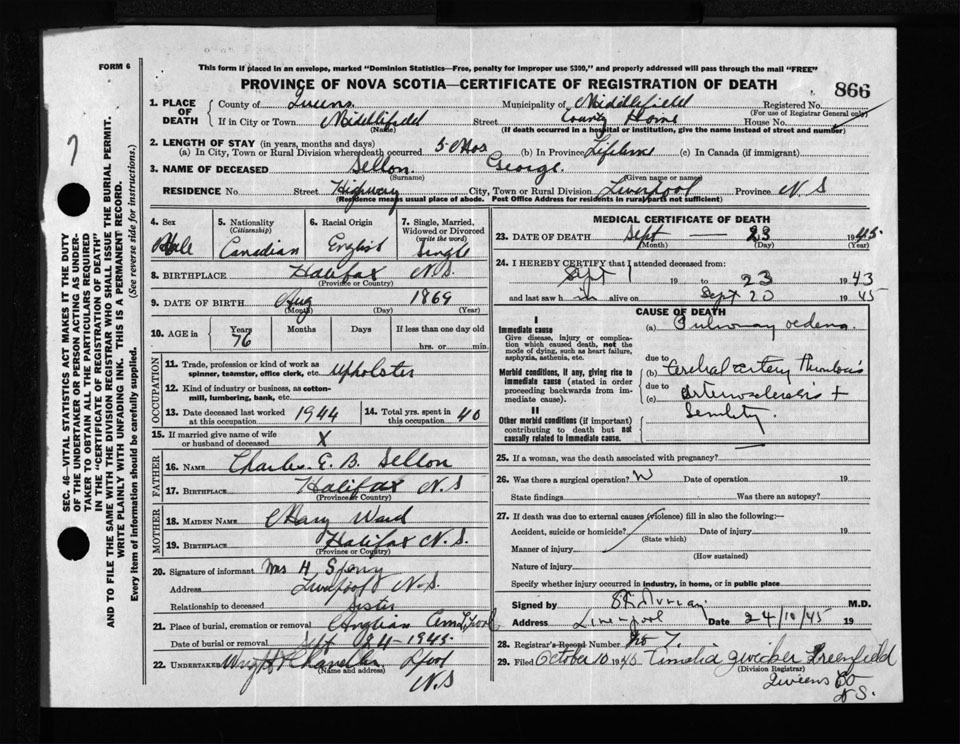 FORM 6
This form if placed in an envelope, marked "Dominion Statistics—Free, penalty for improper use $300," and properly addressed will pass through the mail "FREE"
PROVINCE OF NOVA SCOTIA—CERTIFICATE OF REGISTRATION OF DEATH
866
7
SEC. 46—VITAL STATISTICS ACT MAKES IT THE DUTY
OF THE UNDERTAKER OR PERSON ACTING AS UNDER-
TAKER TO OBTAIN ALL THE PARTICULARS REQUIRED
IN THE "CERTIFICATE OF REGISTRATION OF DEATH"
AND TO FILE THE SAME WITH THE DIVISION REGISTRAR WHO SHALL ISSUE THE BURIAL PERMIT.
WRITE PLAINLY WITH UNFADING INK. THIS IS A PERMANENT RECORD.
Every item of information should be carefully supplied. (See reverse side for instructions.)
1. PLACE OF DEATH County of Queens Municipality of Middlefield Registered No.
(For use of Registrar General only)
If in City or Town Middlefield Street County Home House No.
(Name) (If death occurred in a hospital or institution, give the name instead of street and number)
2. LENGTH OF STAY (in years, months and days)
(a) In City, Town or Rural Division where death occurred 5 Mos (b) In Province Lifetime (c) In Canada (if immigrant)
3. NAME OF DECEASED Sellon George
(Surname) (Given name or names)
RESIDENCE No Street Highway City, Town or Rural Division Liverpool Province N S
(Residence means usual place of abode. Post Office Address for residents in rural parts not sufficient)
4. Sex Male
5. Nationality (Citizenship) Canadian
6. Racial Origin English
7. Single, Married, Widowed or Divorced (write the word) Single
8. BIRTHPLACE Halifax N.S.
(Province or Country)
9. DATE OF BIRTH Aug 1869
(Month) (Day) (Year)
10. AGE in Years 76 Months Days If less than one day old
hrs. or min.
OCCUPATION
11. Trade, profession or kind of work as
spinner, teamster, office clerk, etc. Upholster
12. Kind of industry or business, as cotton-
mill, lumbering, bank, etc.
13. Date deceased last worked at this occupation 1944 14. Total yrs. spent in this occupation 40
15. If married give name of wife or husband of deceased X
FATHER
16. NAME Charles E. B. Sellon
17. BIRTHPLACE Halifax N.S
(Province or Country)
MOTHER
18. MAIDEN NAME Mary Ward
19. BIRTHPLACE Halifax N.S.
(Province or Country)
20. Signature of informant Mrs H. Sperry
Address Liverpool N.S.
Relationship to deceased Sister
21. Place of burial, cremation or removal Anglian Cem L'pool
Date of burial or removal Sept 24-1945.
22. UNDERTAKER L'pool
(Name and address)
N.S
MEDICAL CERTIFICATE OF DEATH
23. DATE OF DEATH Sept 23 1945.
(Month) (Day) (Year)
24. I HEREBY CERTIFY that I attended deceased from:
Sept 1 19 to 23 1943
and last saw h im alive on Sept 20 1945
CAUSE OF DEATH
I
Immediate cause
Give disease, injury or complica-
tion which caused death, not the
mode of dying, such as heart failure,
asphyxia, asthenia, etc.
(a) Pulmonay oedema.
due to
Morbid conditions, if any, giving rise to
immediate cause (stated in order
proceeding backwards from im-
mediate cause).
(b) Cerebral artery Thrombosis
due to
(c) Arteriosclerosis +
Senility
II
Other morbid conditions (if important)
contributing to death but not
causally related to immediate cause.
25. If a woman, was the death associated with pregnancy?
26. Was there a surgical operation? Date of operation 19
State findings Was there an autopsy?
27. If death was due to external causes (violence) fill in also the following:—
Accident, suicide or homicide? Date of injury 19
(State which)
Manner of injury
(How sustained)
Nature of injury
Specify whether injury occurred in industry, in home, or in public place
Signed by M.D.
Address Liverpool Date 24/10/45 19
28. Registrar's Record Number No 7.
29. Filed October 10 1945 Greenfield
(Division Registrar)
Queens Co
N.S.